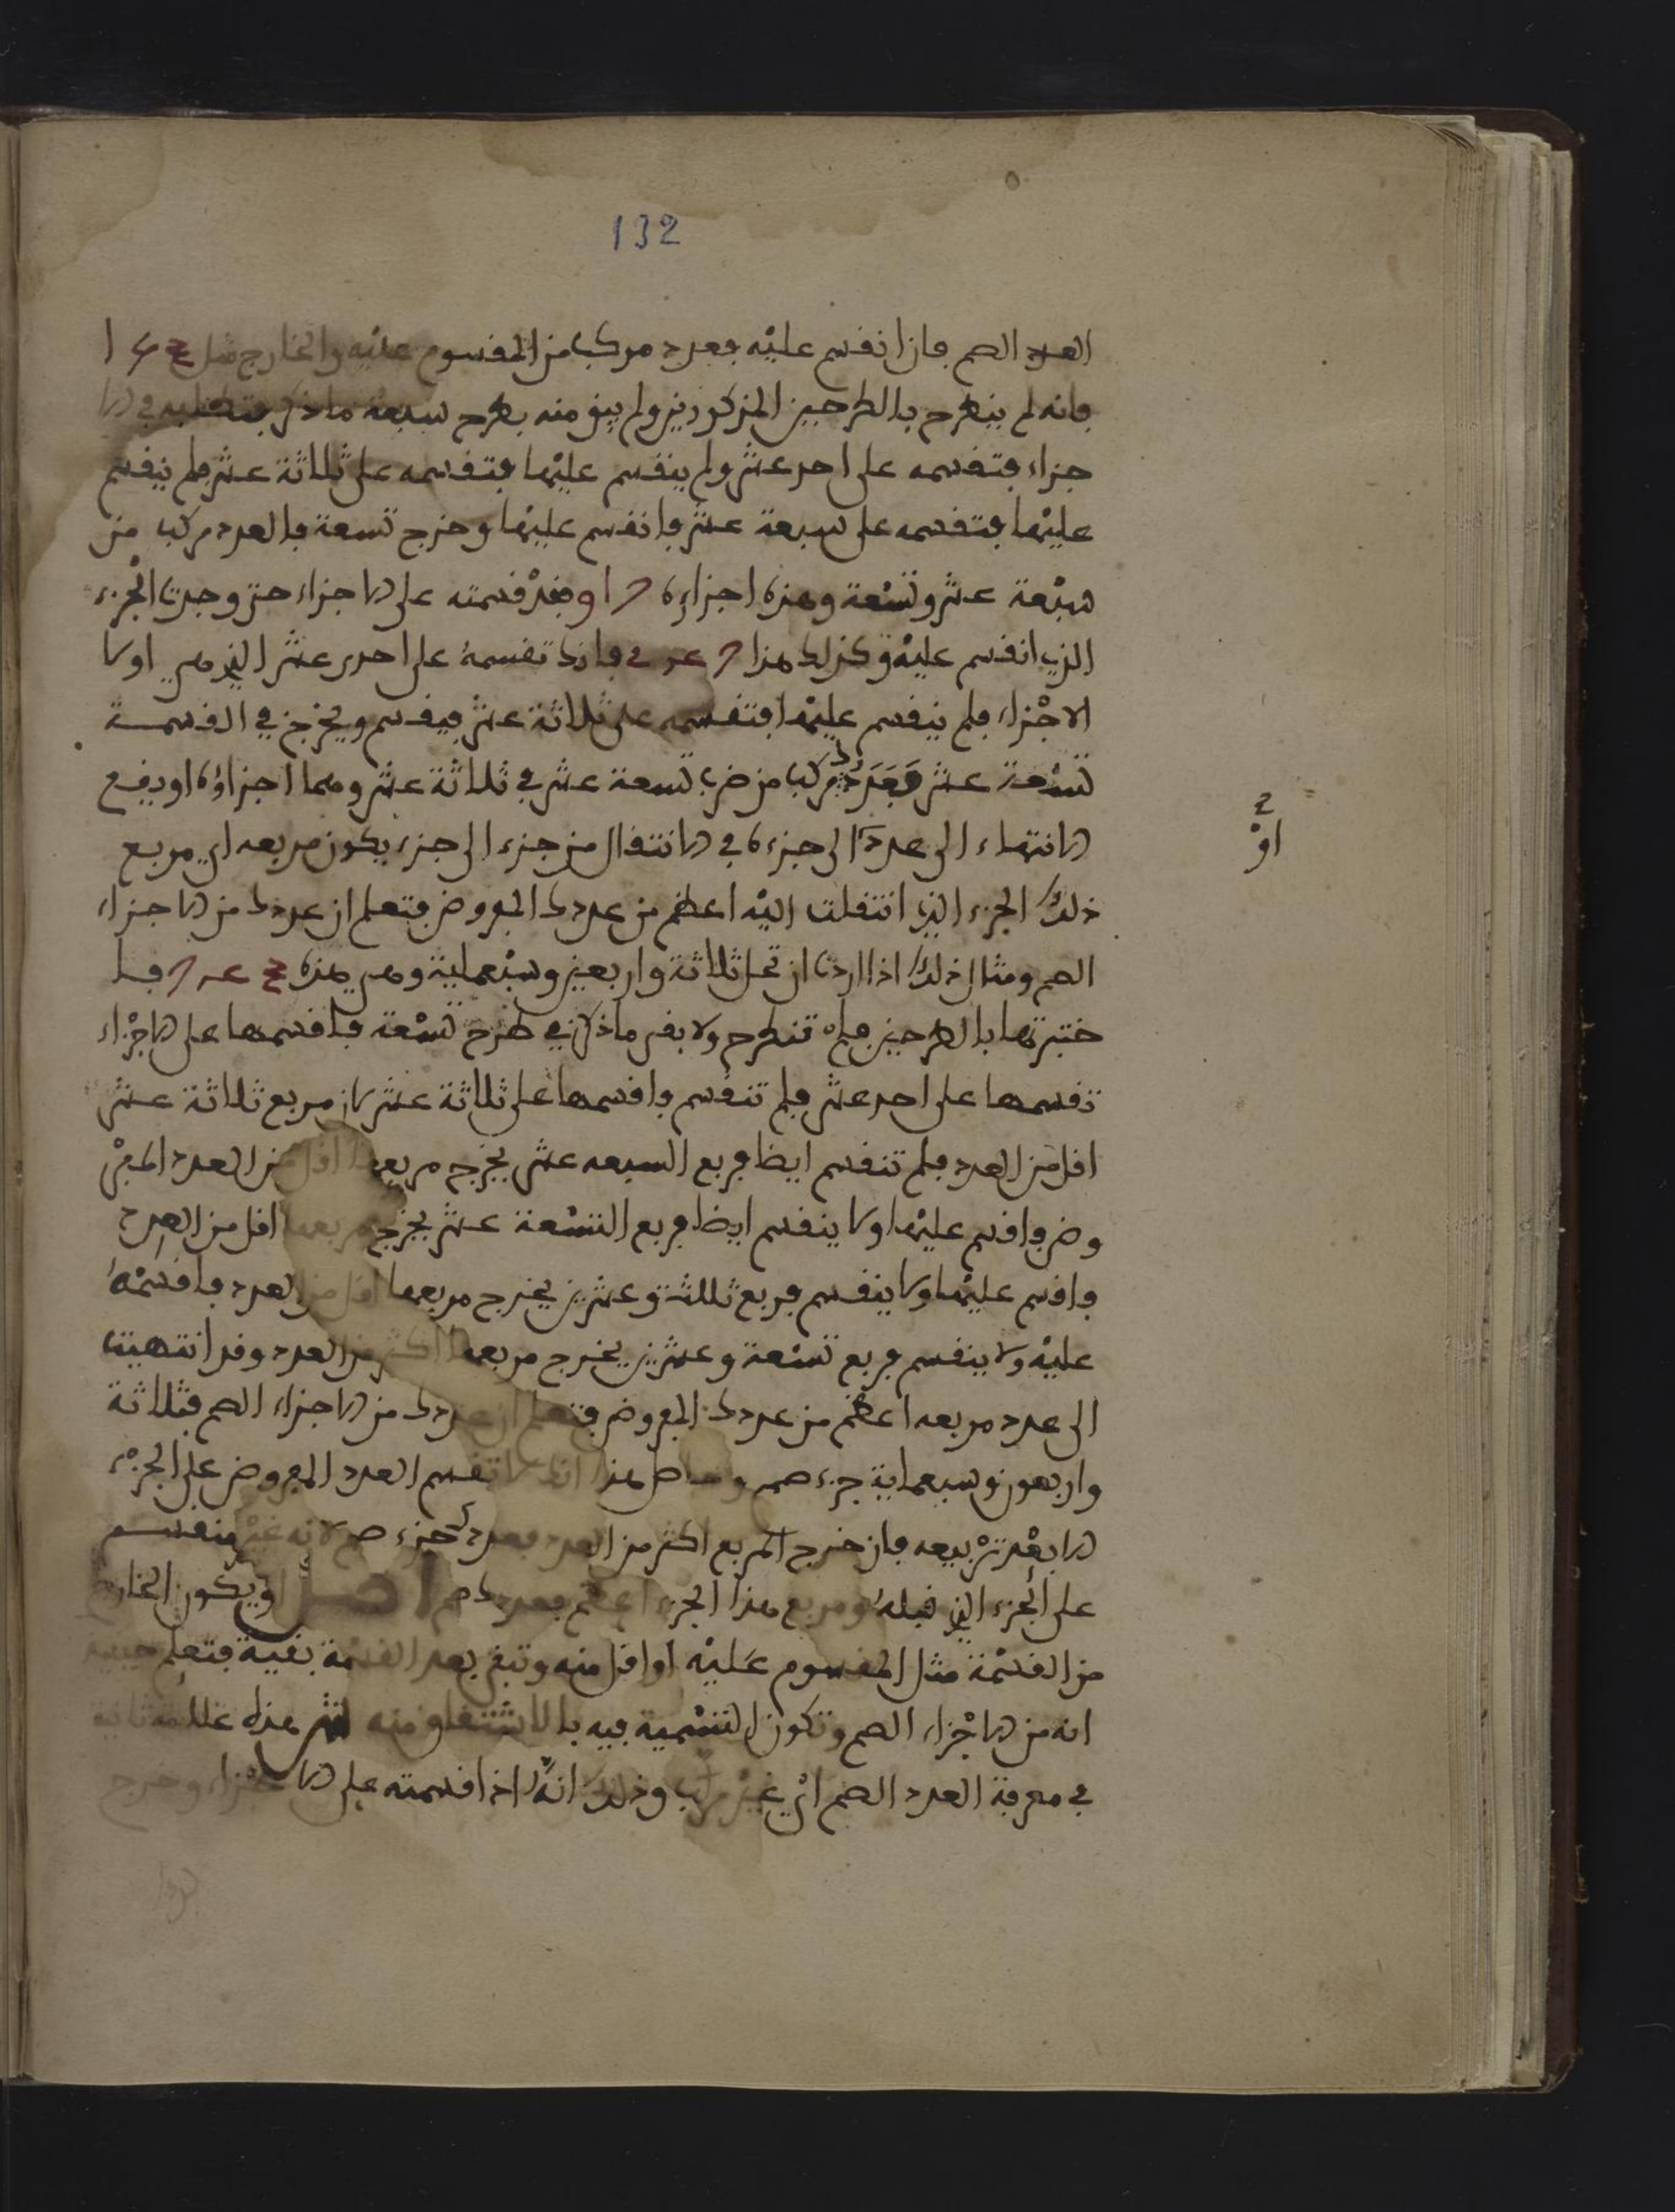 132
العدد الصم فان انقسم عليه فعدد مركب من المقسوم عليه والخارج مثل
فانه لم ينطرح بالطرحين المذكورين ولم يبق منه بطرح سبعة ما ذكر
جزاء فتقسمه على احد عشر ولم ينقسم عليها فتقسمه على ثلاثة عشر فلم ينقسم
عليها فتقسمه على سبعة عشر فانقسم عليها وخرج تسعة فالعدد مركب من
سبعة عشر وتسعة وهذه اجزاءه فقد قسمته على الاجزاء حتى وجدت الجزء
الذي انقسم عليه وكذلك هذا فانك تقسمه على احدى عشر الذي هي اولا
الاجزاء فلم ينقسم عليها فتقسمه على ثلاثة عشر فينقسم ويخرج في القسمة
تسعة عشر فعددك مركب من ضرب تسعة عشر في ثلاثة عشر وهما اجزاؤه او يقع
الانتهاء الى عدد الى جزءه في الانتقال من جزء الى جزء يكون مربعه اي مربع
او
ذلك الجزء الذي انتقلت اليه اعظم من عددك المفروض فتعلم ان عددك من الاجزاء
الصم ومثال ذلك اذا اردت ان تحل ثلاثة واربعين وسبعماية وهي هذه فا
ختبرتها بالطرحين فلم تنطرح ولا بقى ما ذكر في طرح تسعة فاقسمها على الاجزاء
تقسمها على احد عشر فلم تنقسم فاقسمها على ثلاثة عشر لان مربع ثلاثة عشر
اقل من العدد فلم تنقسم ايضا فربع السبعه عشر يخرج مربعها اقل من العدد المفر
وض فاقسم عليها ولا ينقسم ايضا فربع التسعة عشر يخرج مربعها اقل من العدد
فاقسم عليها ولا ينقسم فربع ثلثة وعشرين يخرج مربعها اقل من العدد فاقسمه
عليه ولا ينقسم فربع تسعة وعشرين يخرج مربعها اكثر من العدد وقد انتهيت
الى عدد مربعه اعظم من عددك المفروض فتعلم ان عددك من الاجزاء الصم فثلاثة
واربعون وسبعماية جزء صم وحاصل هذا انك لا تقسم العدد المفروض على الجزء
الا بعد تربيعه فان خرج المربع اكثر من العدد فعددك جزء صم لانه غير منقسم
على الجزء الذي قبله ومربع هذا الجزء اعظم فعددك صم او يكون الخارج
من القسمة مثل المقسوم عليه او اقل منه وتبقى بعد القسمة بقية فتعلم حينيذ
انه من الاجزاء الصم وتكون التسمية فيه بالاشتقاق منه هذه علامة ثانية
في معرفة العدد الصم اي غير مركب وذلك انك اذا قسمته على الاجزاء وخرج